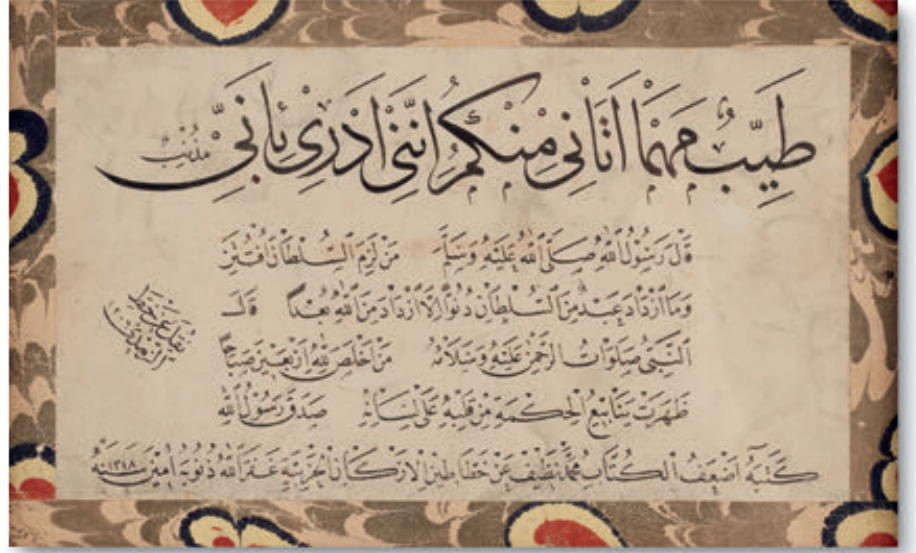 طَيِّبٌ مَهْمَا اَتَانِي مِنْكُمُ اِنَّنِي اَدْرِي بِاَنِّي مُذْنِبٌ
قَالَ رَسُولُ اللّٰهِ صَلَّى اللّٰهُ عَلَيْهِ وَسَلَّمَ مَنْ لَزِمَ السُّلْطَانَ افْتُتِنَ
وَمَا ازْدَادَ عَبْدٌ مِنَ السُّلْطَانِ دُنُوًّا اِلَّا ازْدَادَ مِنَ اللّٰهِ بُعْدًا قَالَ
النَّبِيُّ صَلَوَاتُ الرَّحْمٰنِ عَلَيْهِ وَسَلَامُهُ مَنْ اَخْلَصَ لِلّٰهِ اَرْبَعِينَ صَبَاحًا
ظَهَرَتْ يَنَابِيعُ الْحِكْمَةِ مِنْ قَلْبِهِ عَلَى لِسَانِهِ صَدَقَ رَسُولُ اللّٰهِ
نقل عن خط
كَتَبَهُ اَضْعَفُ الْكُتَّابِ مُحَمَّد نَظِيف عَنْ خُطَّاطِينِ الْاَرْكَانِ الْحَرْبِيَّةِ غَفَرَ اللّٰهُ ذُنُوبَهُ اٰمِينَ سَنَةَ ١٣١٨